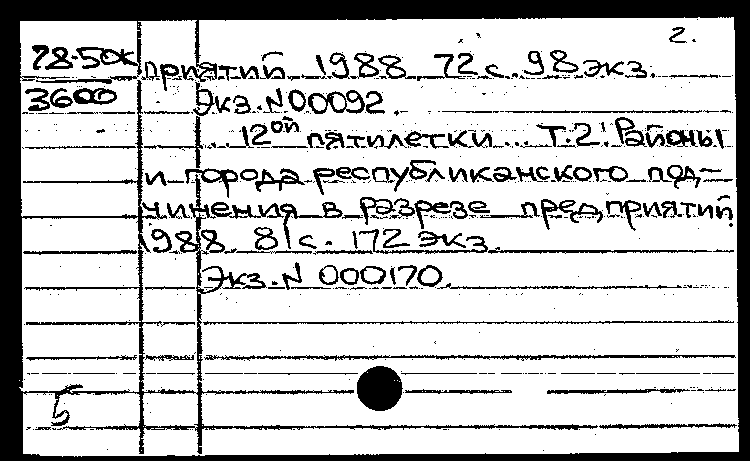 2.
78-50к приятий 1988. 72 с. 98 экз.
3600 Экз. N 00092.
... 12ой пятилетки... Т.2: Районы
и города республиканского под-
чинения в разрезе предприятий
1988. 81 с. 172 экз.
Экз. N 000170.
5